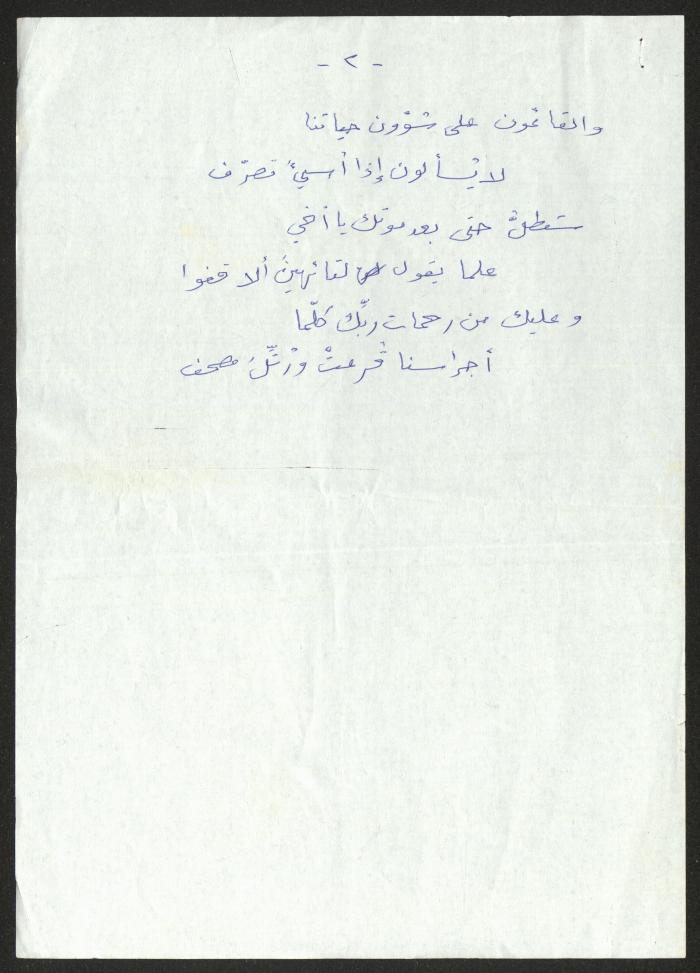 - ٢ -
والقائمون على شؤون حياتنا
لا يُسألون إذا أُسيئَ تصرّف
ستظلُّ حتى بعد موتك يا أخي
علما يقول لقائهينَ ألا قفوا
وعليك من رحمات ربِّك كلّما
أجراسنا قُرعتْ ورُتِّلَ مصحف